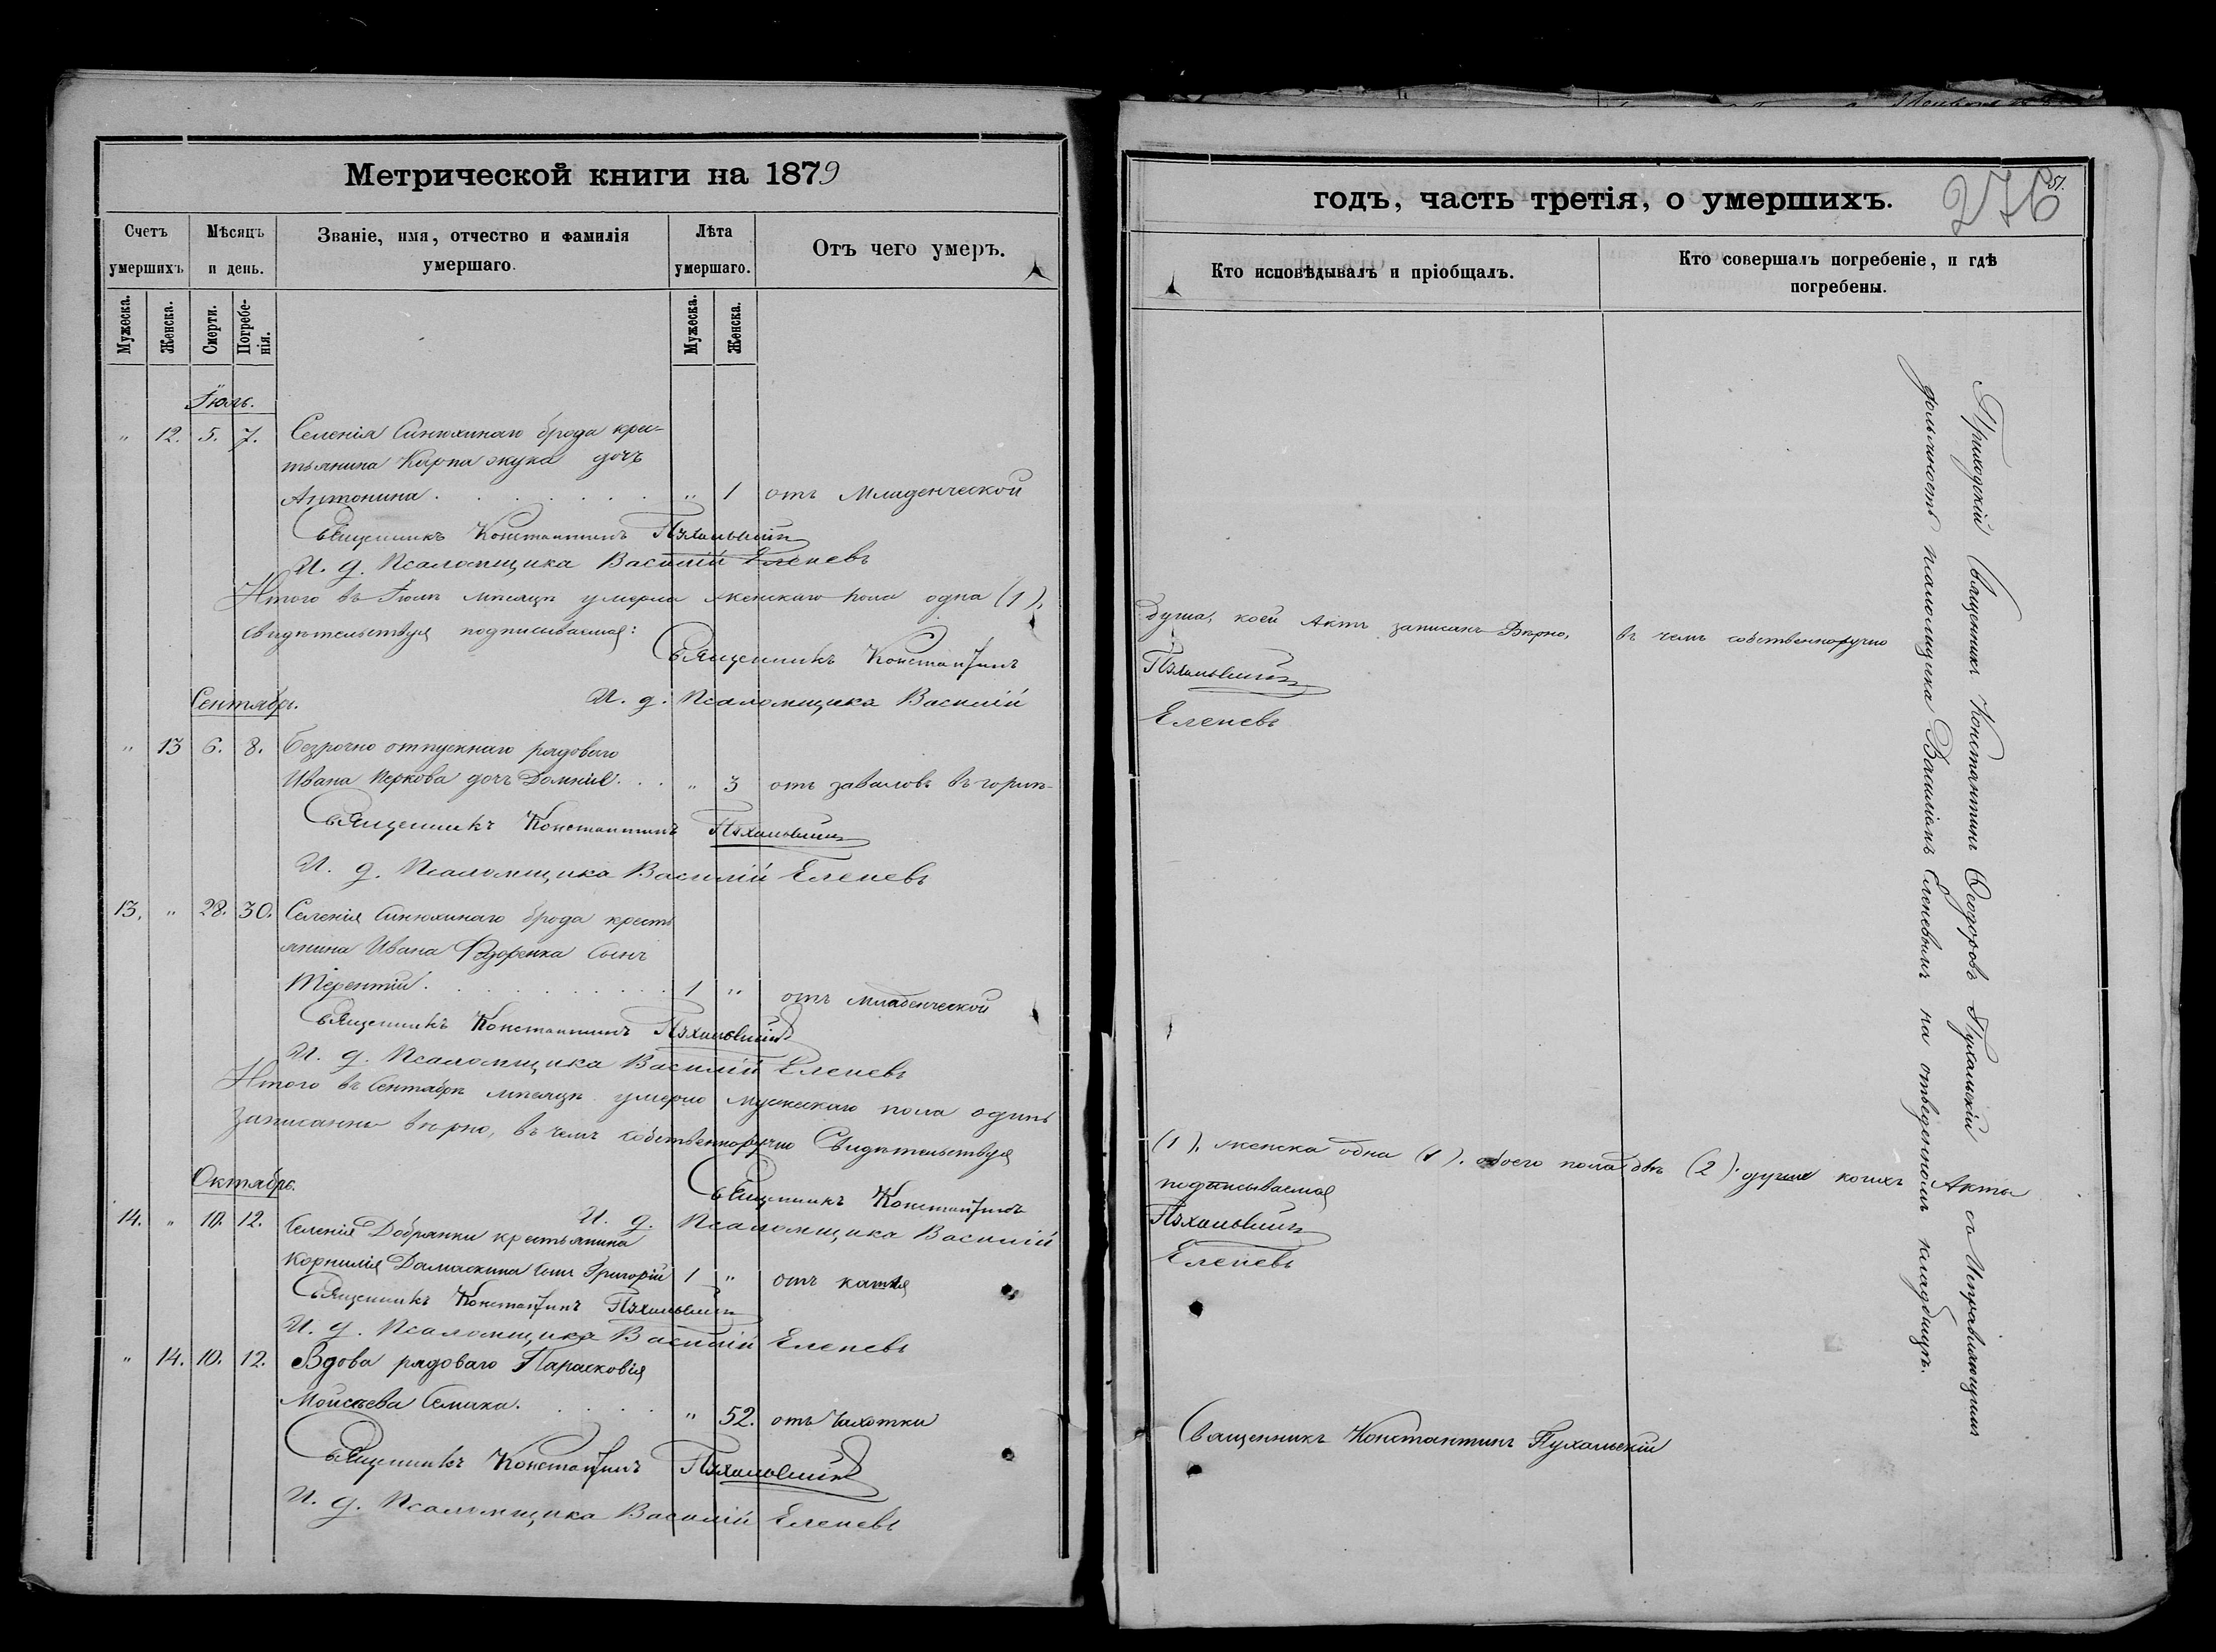 Метрической книги на 1879
Счетъ умершихъ
Мѣсяцъ и день.
Званіе, имя, отчество и фамилія умершаго.
Лѣта умершаго.
Отъ чего умеръ.
Мужеска.
Женска.
Смерти.
Погребенія.
Мужеска.
Женска.
Іюль.
" 12. 5. 7. Селенія Синюхинаго брода кре-
тьянина Карпа жука дочь
Антонина . . . . . . " 1 отъ Младенческой
Священникъ Константинъ Пухальскій
И. д. Псаломщика Василій Еленевъ
Итого въ Іюлѣ мѣсяцѣ умерла женскаго пола одна (1).
свидѣтельствуя подписываемся:
Священникъ Константинъ
И. д. Псаломщика Василій
Сентябрь.
" 13 6. 8. Безрочно отпускнаго рядоваго
Ивана дочь Домнія . . " 3 отъ заваловъ въ горлѣ
Священникъ Константинъ Пухальскій
И. д. Псаломщика Василій Еленевъ
13. " 28. 30. Селенія Синюхинаго брода кресть
янина Ивана Федоренка сынъ
Терентій . . . . . . 1 " отъ младенческой
Священникъ Константинъ Пухальскій
И. д. Псаломщика Василій Еленевъ
Итого въ Сентябрѣ мѣсяцѣ умерло мужескаго пола одинъ
записанны вѣрно, въ чемъ собственноручно Свидѣтельствуя
Священникъ Константинъ
Октябрь.
И. д. Псаломщика Василій
14. " 10. 12. Селенія Добрянки крестьянина
Корнилія Дамаскина сынъ Григорій 1 " отъ кашля
Священникъ Константинъ Пухальскій
И. д. Псаломщика Василій Еленевъ
" 14. 10. 12. Вдова рядоваго Парасковія
Моисѣева . . . . " 52. отъ Чахотки
Священникъ Константинъ Пухальскій
И. д. Псаломщика Василій Еленевъ
годъ, часть третія, о умершихъ.
276
51.
Кто исповѣдывалъ и пріобщалъ.
Кто совершалъ погребеніе, и гдѣ погребены.
душа, коей Актъ записанъ Вѣрно, въ чемъ собственноручно
Пухальскій
Еленевъ
(1). женска одна (1). обоего пола двѣ (2). души коихъ Акты
подписываемся
Пухальскій
Еленевъ
Священникъ Константинъ Пухальскій
Приходскій Священникъ Константинъ Ѳеодоровъ Пухальскій съ Исправляющимъ
должность псаломщика Василіемъ Еленевымъ на отведенномъ кладбищѣ.